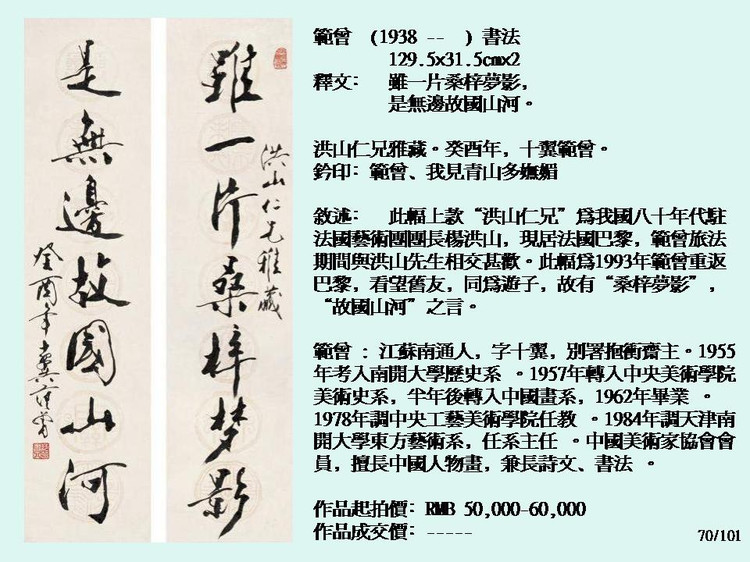 雖一片桑梓梦影
洪山仁兄雅藏
是無邊故國山河
癸酉年十翼范曾
範曾 (1938 -- ) 書法
129.5x31.5cmx2
釋文: 雖一片桑梓夢影,
是無邊故國山河。
洪山仁兄雅藏。癸酉年, 十翼範曾。
鈐印: 範曾、我見青山多嫵媚
敘述: 此幅上款“洪山仁兄”爲我國八十年代駐
法國藝術團團長楊洪山, 現居法國巴黎, 範曾旅法
期間與洪山先生相交甚歡。此幅爲1993年範曾重返
巴黎, 看望舊友, 同爲遊子, 故有“桑梓夢影”,
“故國山河”之言。
範曾 : 江蘇南通人, 字十翼, 別署抱衝齋主。1955
年考入南開大學歷史系 。1957年轉入中央美術學院
美術史系, 半年後轉入中國畫系, 1962年畢業 。
1978年調中央工藝美術學院任教 。1984年調天津南
開大學東方藝術系, 任系主任 。中國美術家協會會
員, 擅長中國人物畫, 兼長詩文、書法 。
作品起拍價: RMB 50,000-60,000
作品成交價: -----
70/101